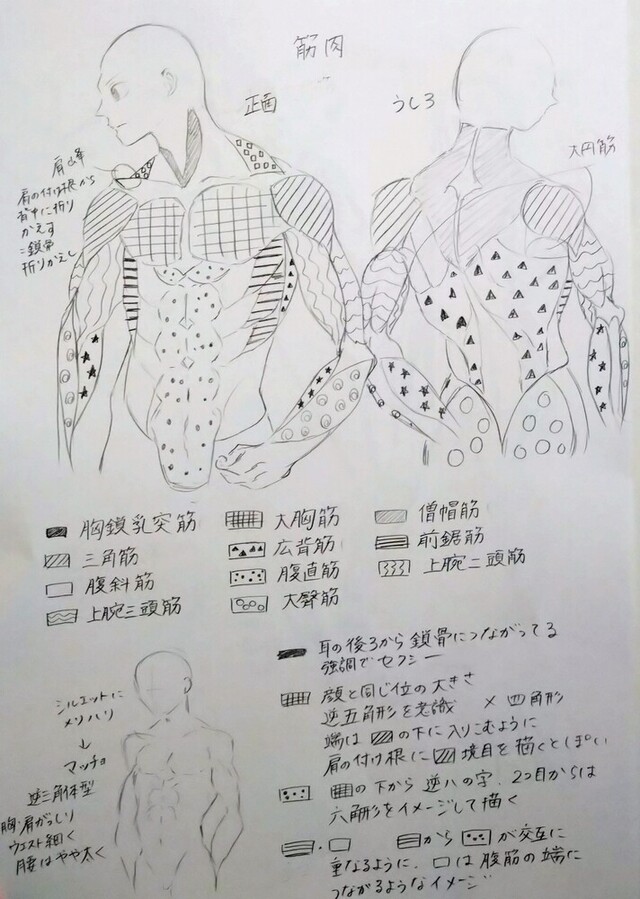 筋肉
正面
うしろ
肩峰
肩の付け根から
背中に折り
かえす
鎖骨
折りかえし
大円筋
胸鎖乳突筋
大胸筋
僧帽筋
三角筋
広背筋
前鋸筋
腹斜筋
腹直筋
上腕二頭筋
上腕三頭筋
大臀筋
耳の後ろから鎖骨につながってる
強調でセクシー
顔と同じ位の大きさ
逆五角形を意識 × 四角形
端は の下に入りこむように
肩の付け根に 境目を描くとぽい
の下から逆ハの字、2つ目からは
六角形をイメージして描く
・ から が交互に
重なるように、 は腹筋の端に
つながるようなイメージ
シルエットに
メリハリ
↓
マッチョ
逆三角体型
胸・肩がっしり
ウエスト細く
腰はやや太く